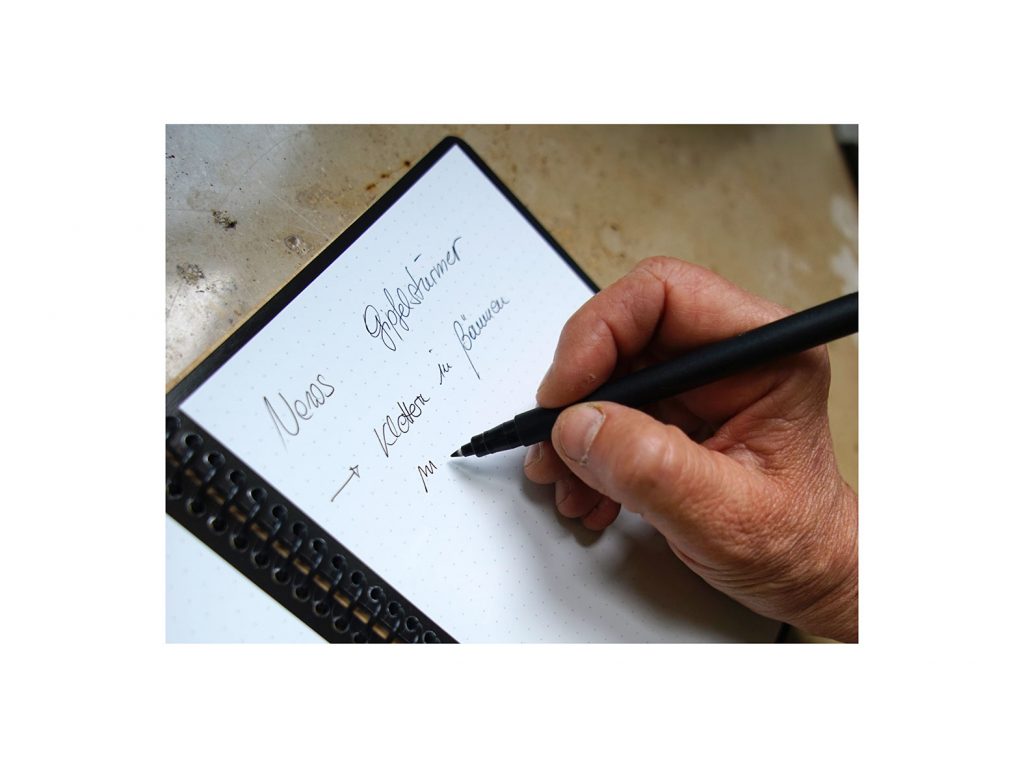 Neros Gipfelstürmer
→ Klettern in Bäumen